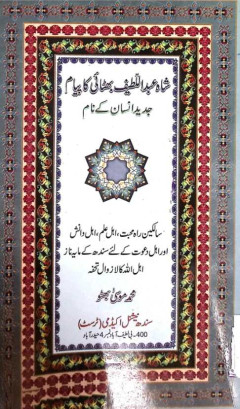 شاہ عبداللطیف بھٹائی کا پیام
جدید انسان کے نام
سالکین راہ محبت، اہل علم، اہل دانش
اور اہل دعوت کے لئے سندھ کے مایہ ناز
اہل اللہ کا لازوال تحفہ
محمد موسیٰ بھٹو
سندھ نیشنل اکیڈمی (ٹرسٹ)
400۔بی لطیف آباد نمبر 4 حیدرآباد